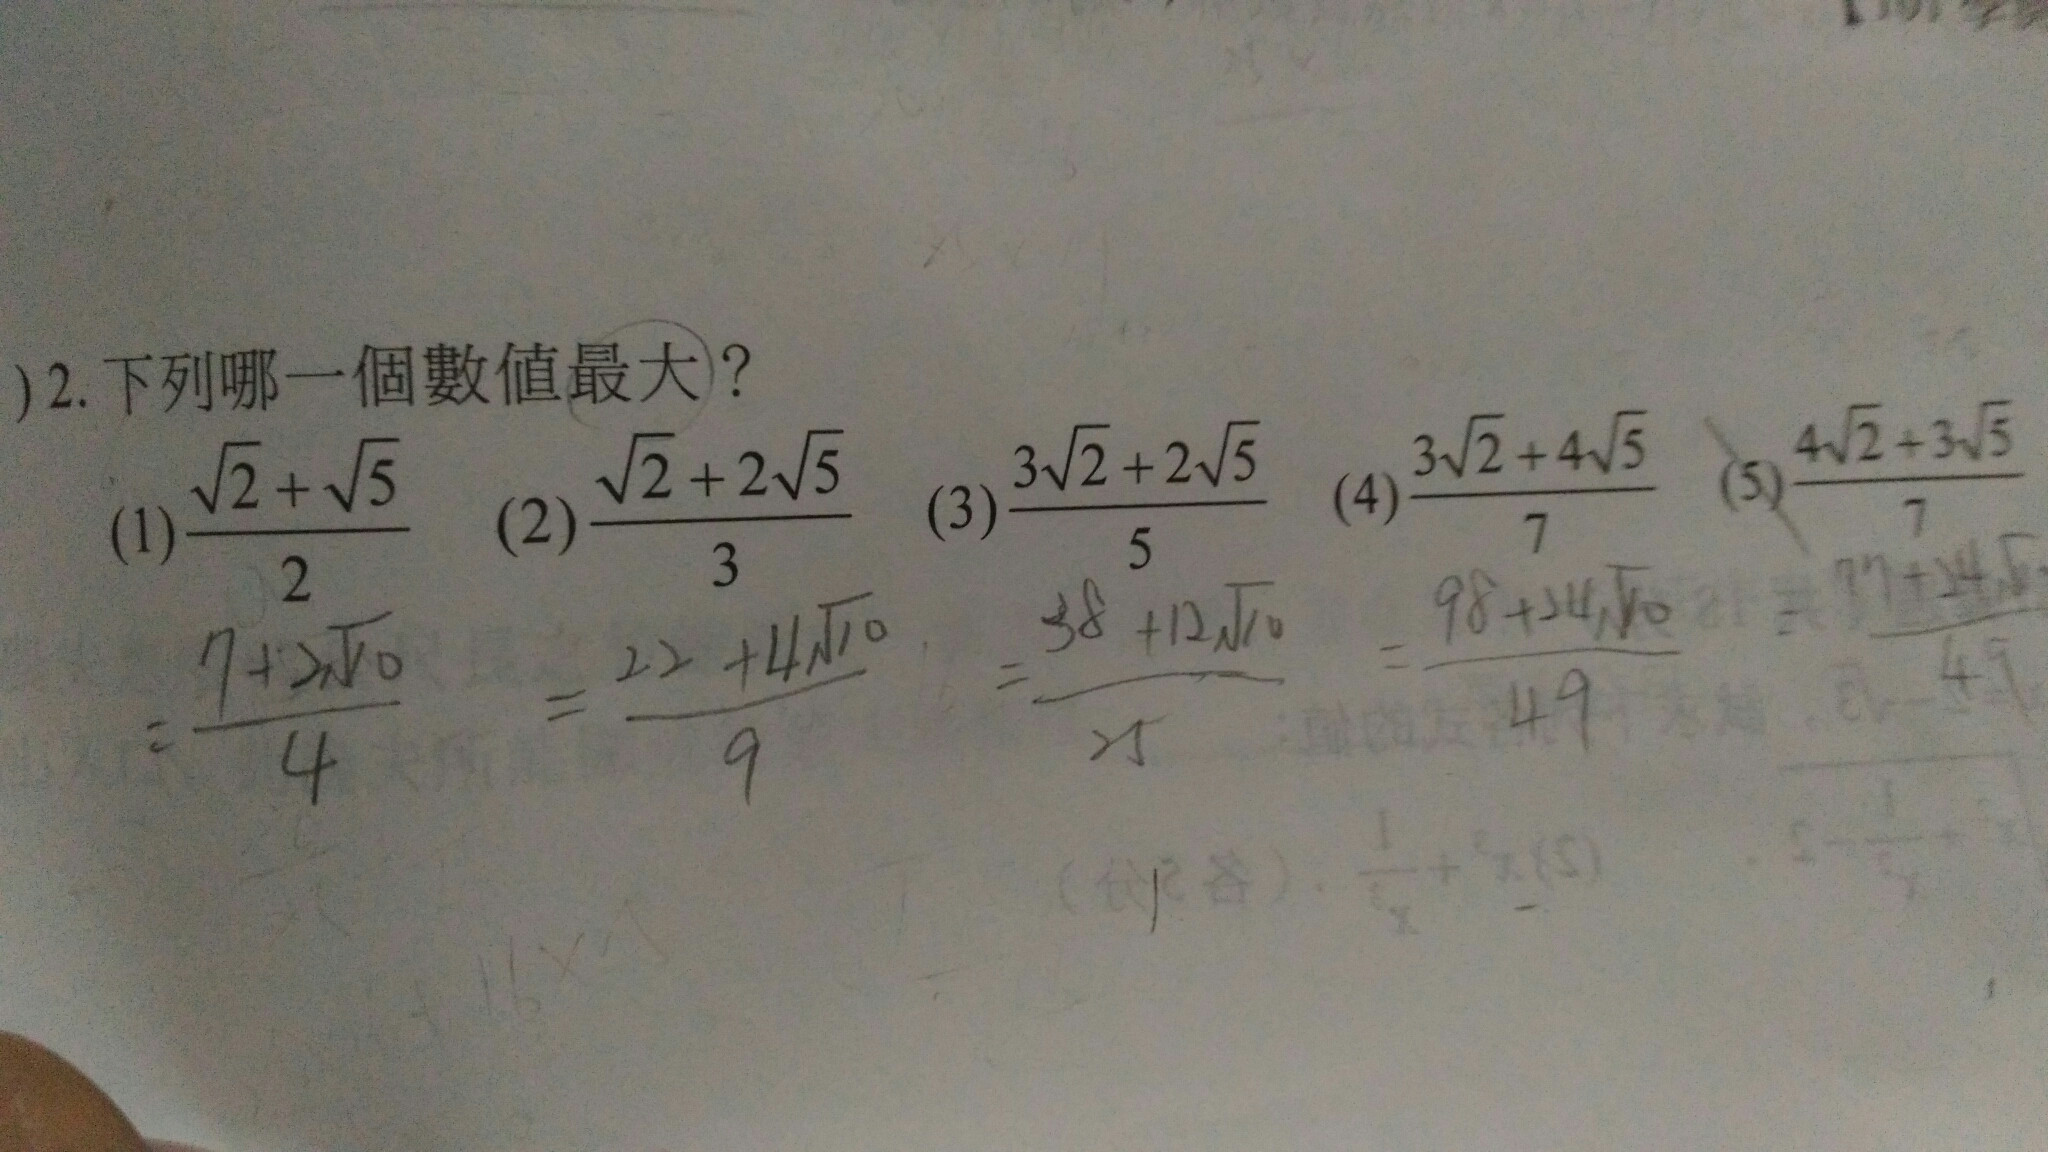 )2. 下列哪一個數值最大？
(1) (√2+√5)/2 (2) (√2+2√5)/3 (3) (3√2+2√5)/5 (4) (3√2+4√5)/7 (5) (4√2+3√5)/7
= (7+2√10)/4 = (22+4√10)/9 = (38+12√10)/25 = (98+24√10)/49 = 77+24√